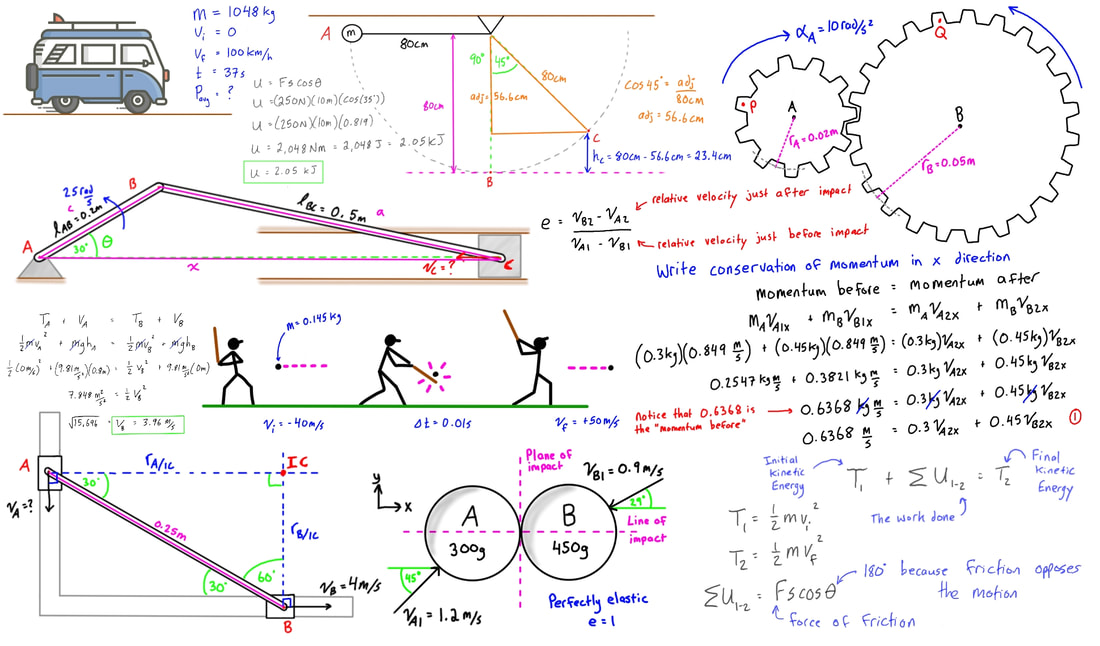 m = 1048 kg
v_i = 0
v_f = 100 km/h
t = 37s
P_avg = ?
U = F s cos θ
U = (250N)(10m)(cos(35°))
U = (250N)(10m)(0.819)
U = 2,048 Nm = 2,048 J = 2.05 kJ
U = 2.05 kJ
A
m
80cm
90°
45°
80cm
80cm
adj = 56.6cm
C
h_c = 80cm - 56.6cm = 23.4cm
B
cos45° = adj/80cm
adj = 56.6cm
α_A = 10 rad/s²
P
A
r_A = 0.02m
Q
B
r_B = 0.05m
25 rad/s
B
c
l_AB = 0.2m
l_BC = 0.5m
a
A
30°
θ
x
v_C = ?
C
e = (v_B2 - v_A2)/(v_A1 - v_B1)
relative velocity just after impact
relative velocity just before impact
Write conservation of momentum in x direction
momentum before = momentum after
m_A v_A1x + m_B v_B1x = m_A v_A2x + m_B v_B2x
(0.3kg)(0.849 m/s) + (0.45kg)(0.849 m/s) = (0.3kg)v_A2x + (0.45kg)v_B2x
0.2547 kg m/s + 0.3821 kg m/s = 0.3kg v_A2x + 0.45kg v_B2x
notice that 0.6368 is the "momentum before"
0.6368 kg m/s = 0.3kg v_A2x + 0.45kg v_B2x
0.6368 m/s = 0.3 v_A2x + 0.45 v_B2x
1
T_A + V_A = T_B + V_B
½mv_A² + mgh_A = ½mv_B² + mgh_B
½(0m/s)² + (9.81 m/s²)(0.8m) = ½v_B² + 9.81 m/s²(0m)
7.848 m²/s² = ½v_B²
√15.696 = v_B = 3.96 m/s
m = 0.145 kg
v_i = -40m/s
Δt = 0.01s
v_f = +50m/s
A
r_A/IC
IC
30°
v_A = ?
0.25m
r_B/IC
60°
30°
v_B = 4m/s
B
y
x
Plane of impact
v_B1 = 0.9 m/s
29°
Line of impact
A
300g
B
450g
45°
v_A1 = 1.2 m/s
Perfectly elastic
e = 1
Initial Kinetic Energy
T_1 + ΣU_1-2 = T_2
Final Kinetic Energy
The work done
T_1 = ½mv_i²
T_2 = ½mv_f²
ΣU_1-2 = F s cos θ
180° because friction opposes the motion
force of friction